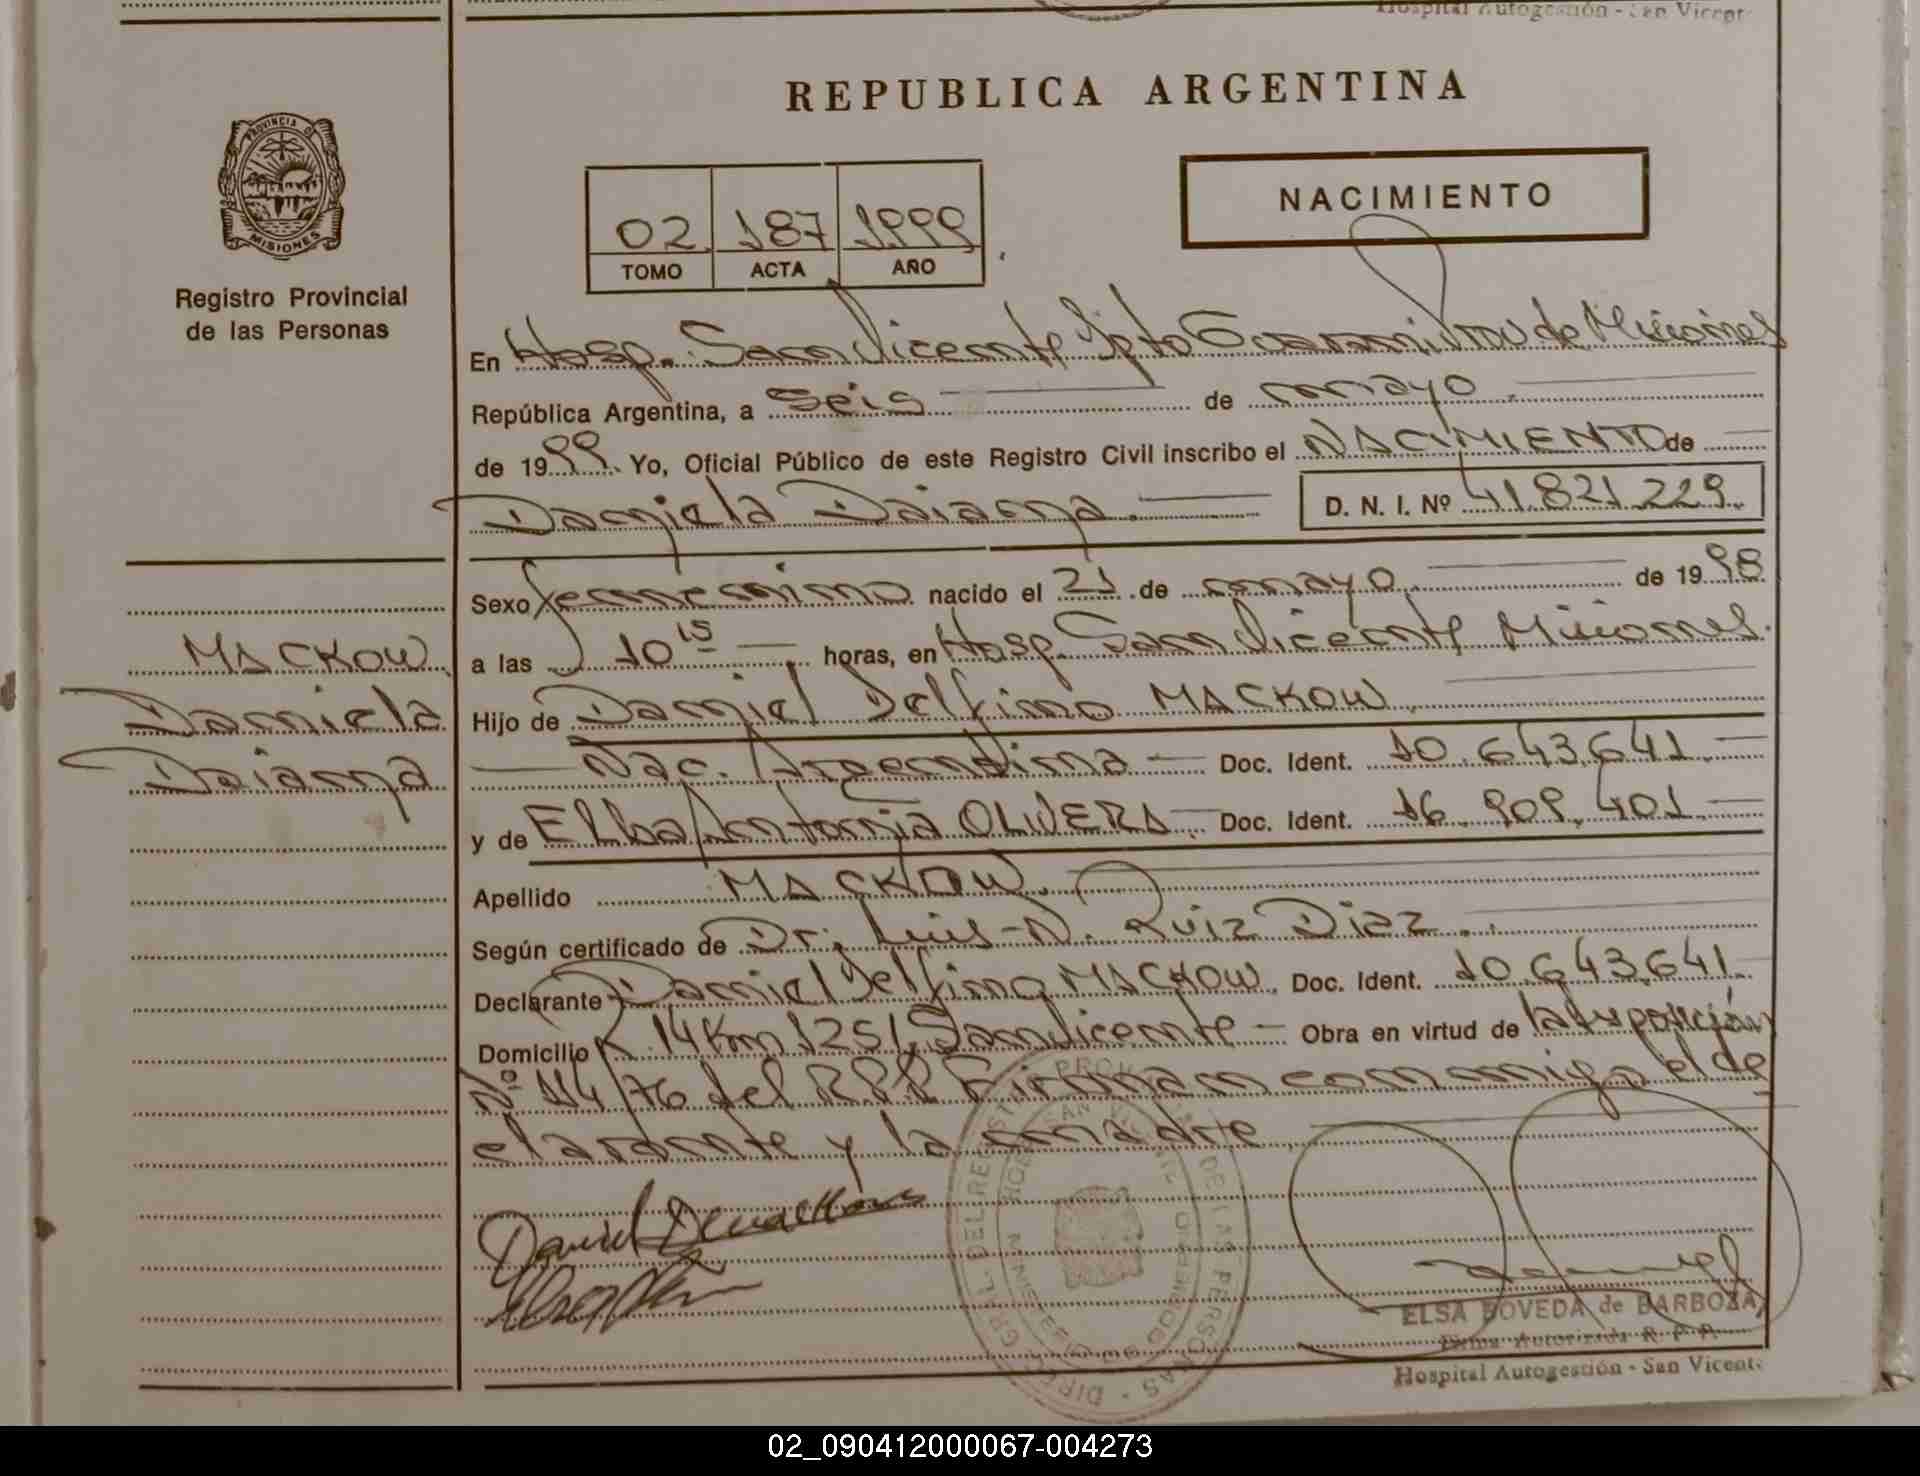 Hospital Autogestión - San Vicent
REPUBLICA ARGENTINA
PROVINCIA DE
MISIONES
Registro Provincial
de las Personas
NACIMIENTO
02 187 1999
TOMO ACTA AÑO
En Hosp. San Vicente Dpto Guarani Prov de Misiones
República Argentina, a seis de mayo
de 1999. Yo, Oficial Público de este Registro Civil inscribo el NACIMIENTO de
Daniela Daiana. D. N. I. Nº 41.821.229.
Sexo femenino nacido el 21 de mayo de 1998
MACKOW
Daniela
Daiana
a las 10 15 horas, en Hosp. San Vicente Misiones.
Hijo de Daniel Delfino MACKOW
Nac. Argentina Doc. Ident. 10.643.641
y de Elba Antonia OLIVERA. Doc. Ident. 16.909.401
Apellido MACKOW.
Según certificado de Dr. Luis N. Ruiz Diaz.
Declarante Daniel Delfino MACKOW. Doc. Ident. 10.643.641
Domicilio R. 14 Km 1251 San Vicente - Obra en virtud de la disposición
Nº 114/76 del R.P.P. Firman conmigo el de
clarante y la madre
DIREC. GRAL. DEL REGISTRO PROV. DE LAS PERSONAS
ELSA BOVEDA de BARBOZA
Firma Autorizada R. P. P.
Hospital Autogestión - San Vicent
02_090412000067-004273